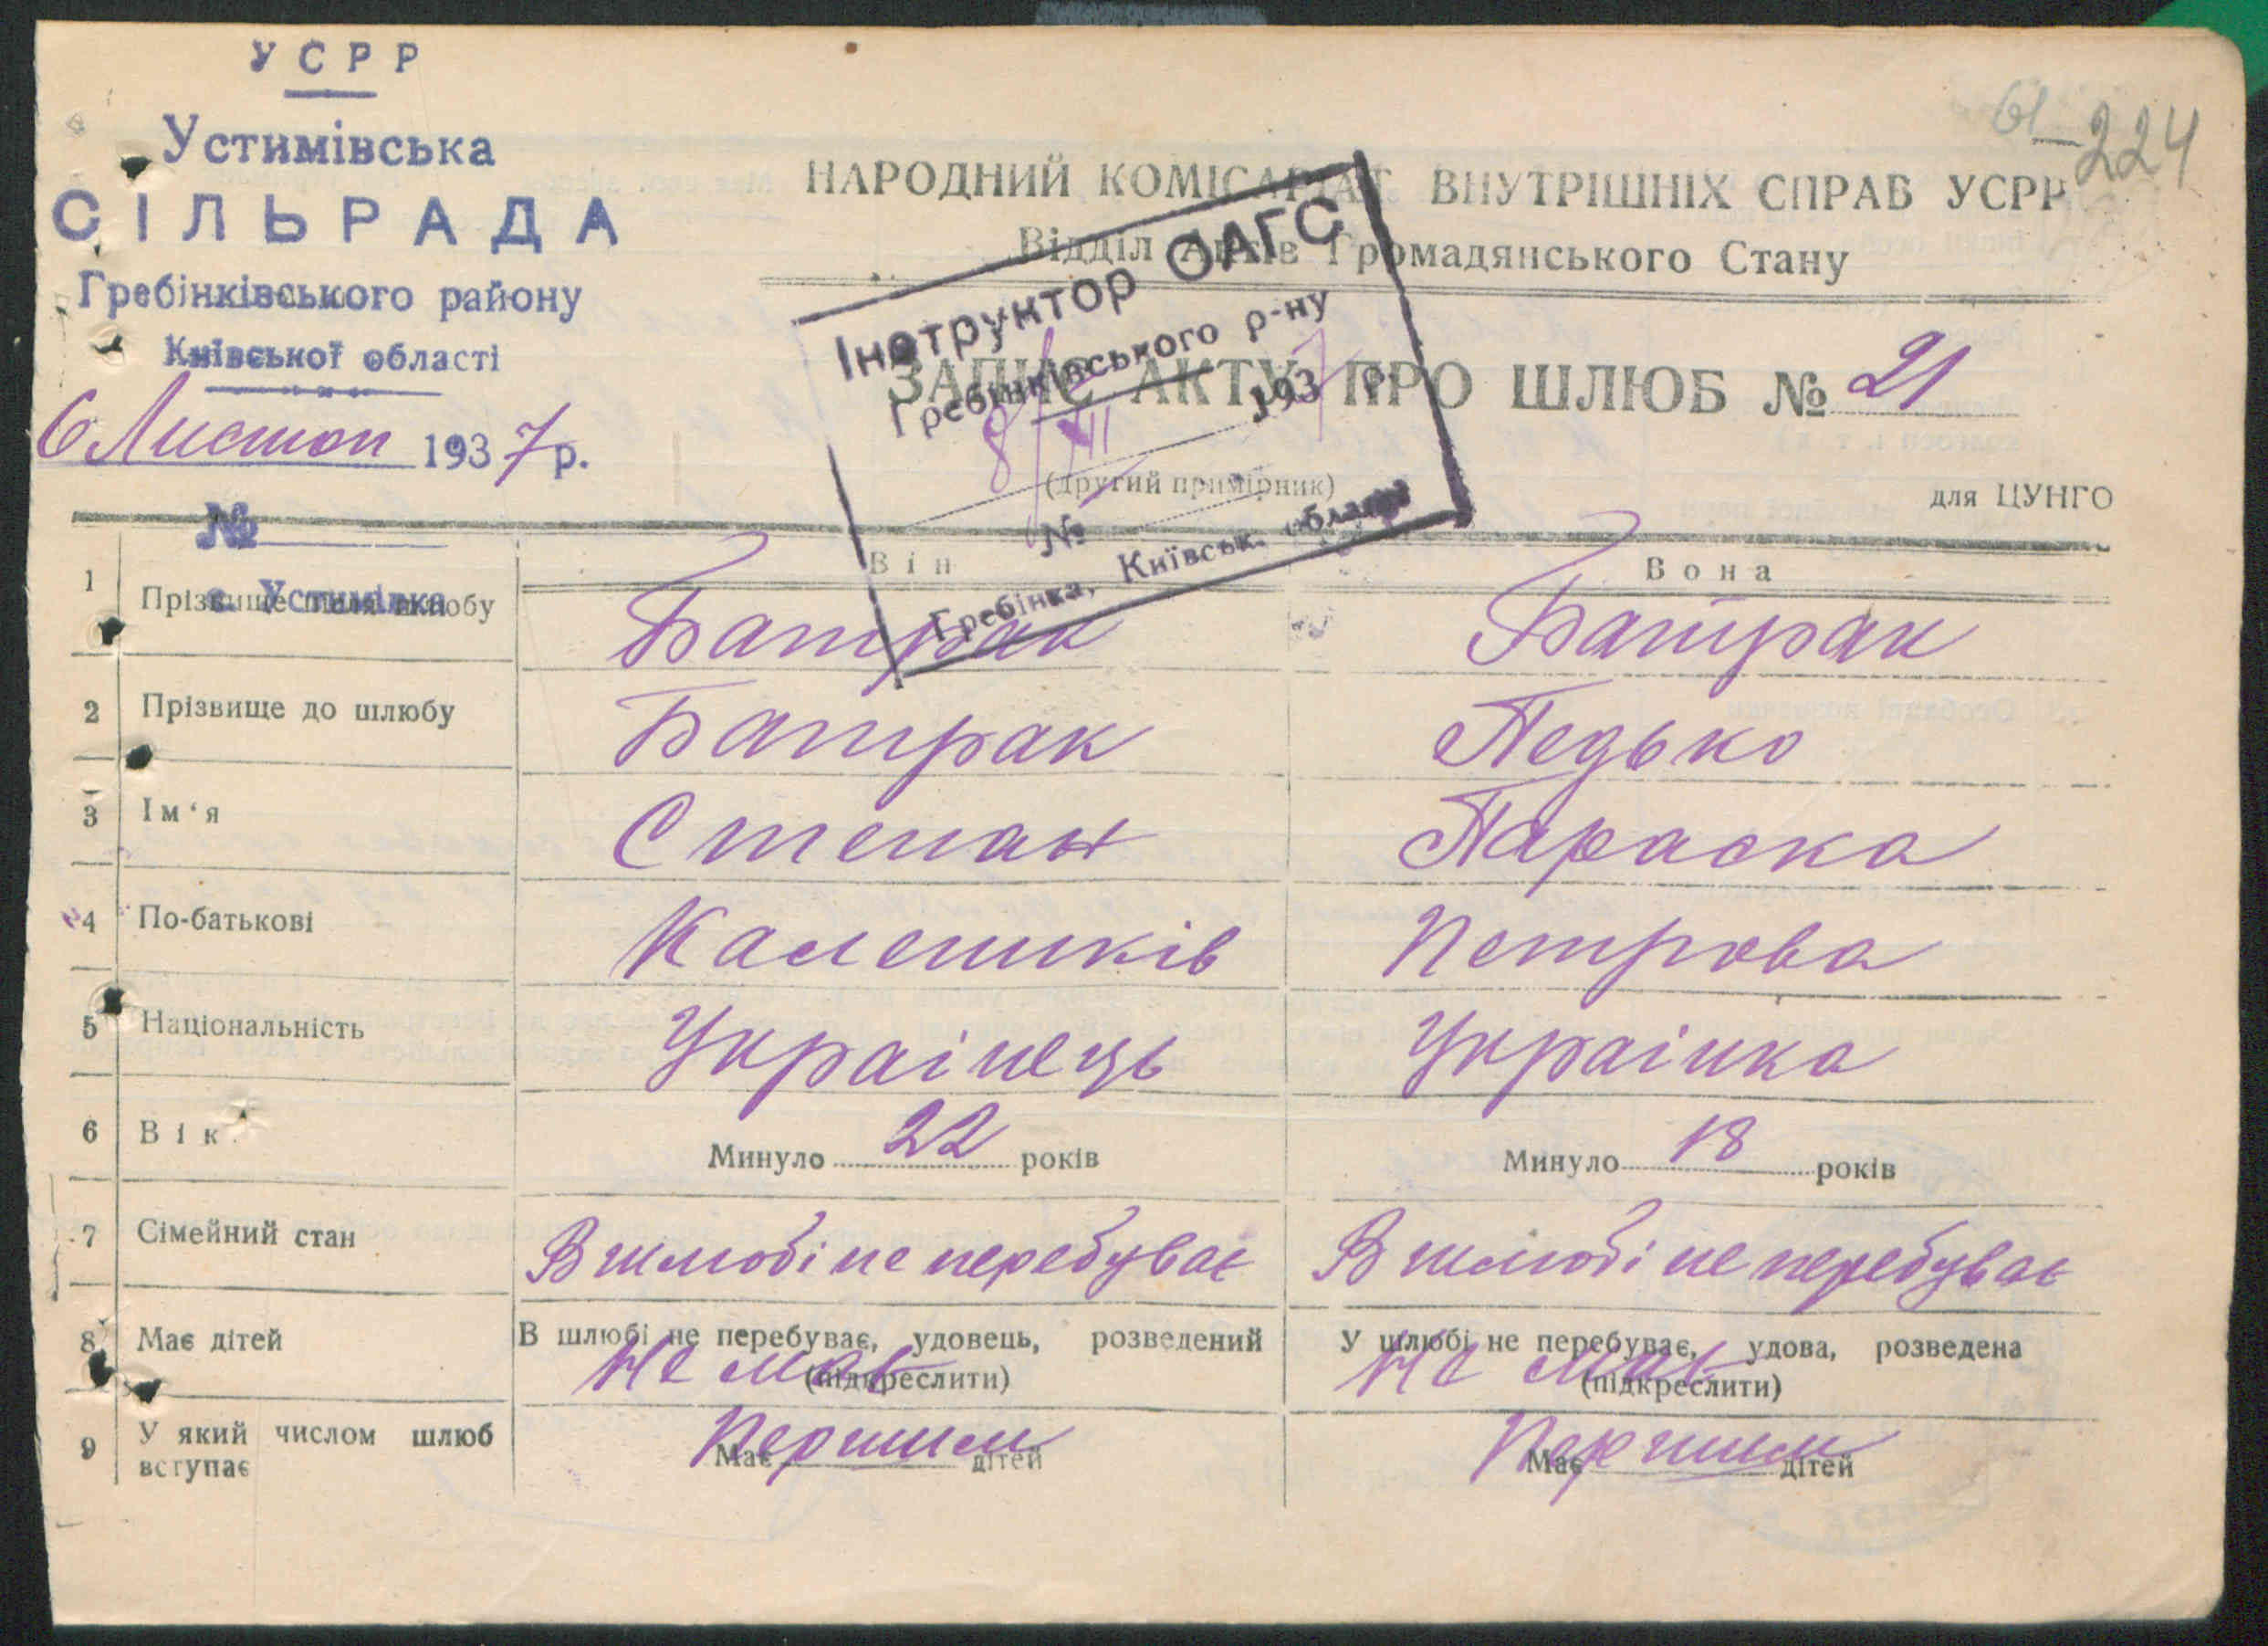 УСРР
Устимівська
СІЛЬРАДА
Гребінківського району
Київської області
6 Листоп 1937 р.
№
с. Устимівка
61 224
НАРОДНИЙ КОМІСАРІАТ ВНУТРІШНІХ СПРАВ УСРР
Відділ Актів Громадянського Стану
ЗАПИС АКТУ ПРО ШЛЮБ № 21
(другий примірник)
для ЦУНГО
Інструктор ОАГС
Гребінківського р-ну
8/XII 1937 р.
№
Гребінка, Київськ. области
Він Вона
1 Прізвище після шлюбу Батрак Батрак
2 Прізвище до шлюбу Батрак Педько
3 Ім'я Степан Параска
4 По-батькові Калеників Петрова
5 Національність Українець Українка
6 Вік Минуло 22 років Минуло 18 років
7 Сімейний стан В шлюбі не перебуває В шлюбі не перебуває
8 Має дітей В шлюбі не перебуває, удовець, розведений У шлюбі не перебуває, удова, розведена
(підкреслити) (підкреслити)
Не має Не має
9 У який числом шлюб вступає Першим Першим
Має дітей Має дітей